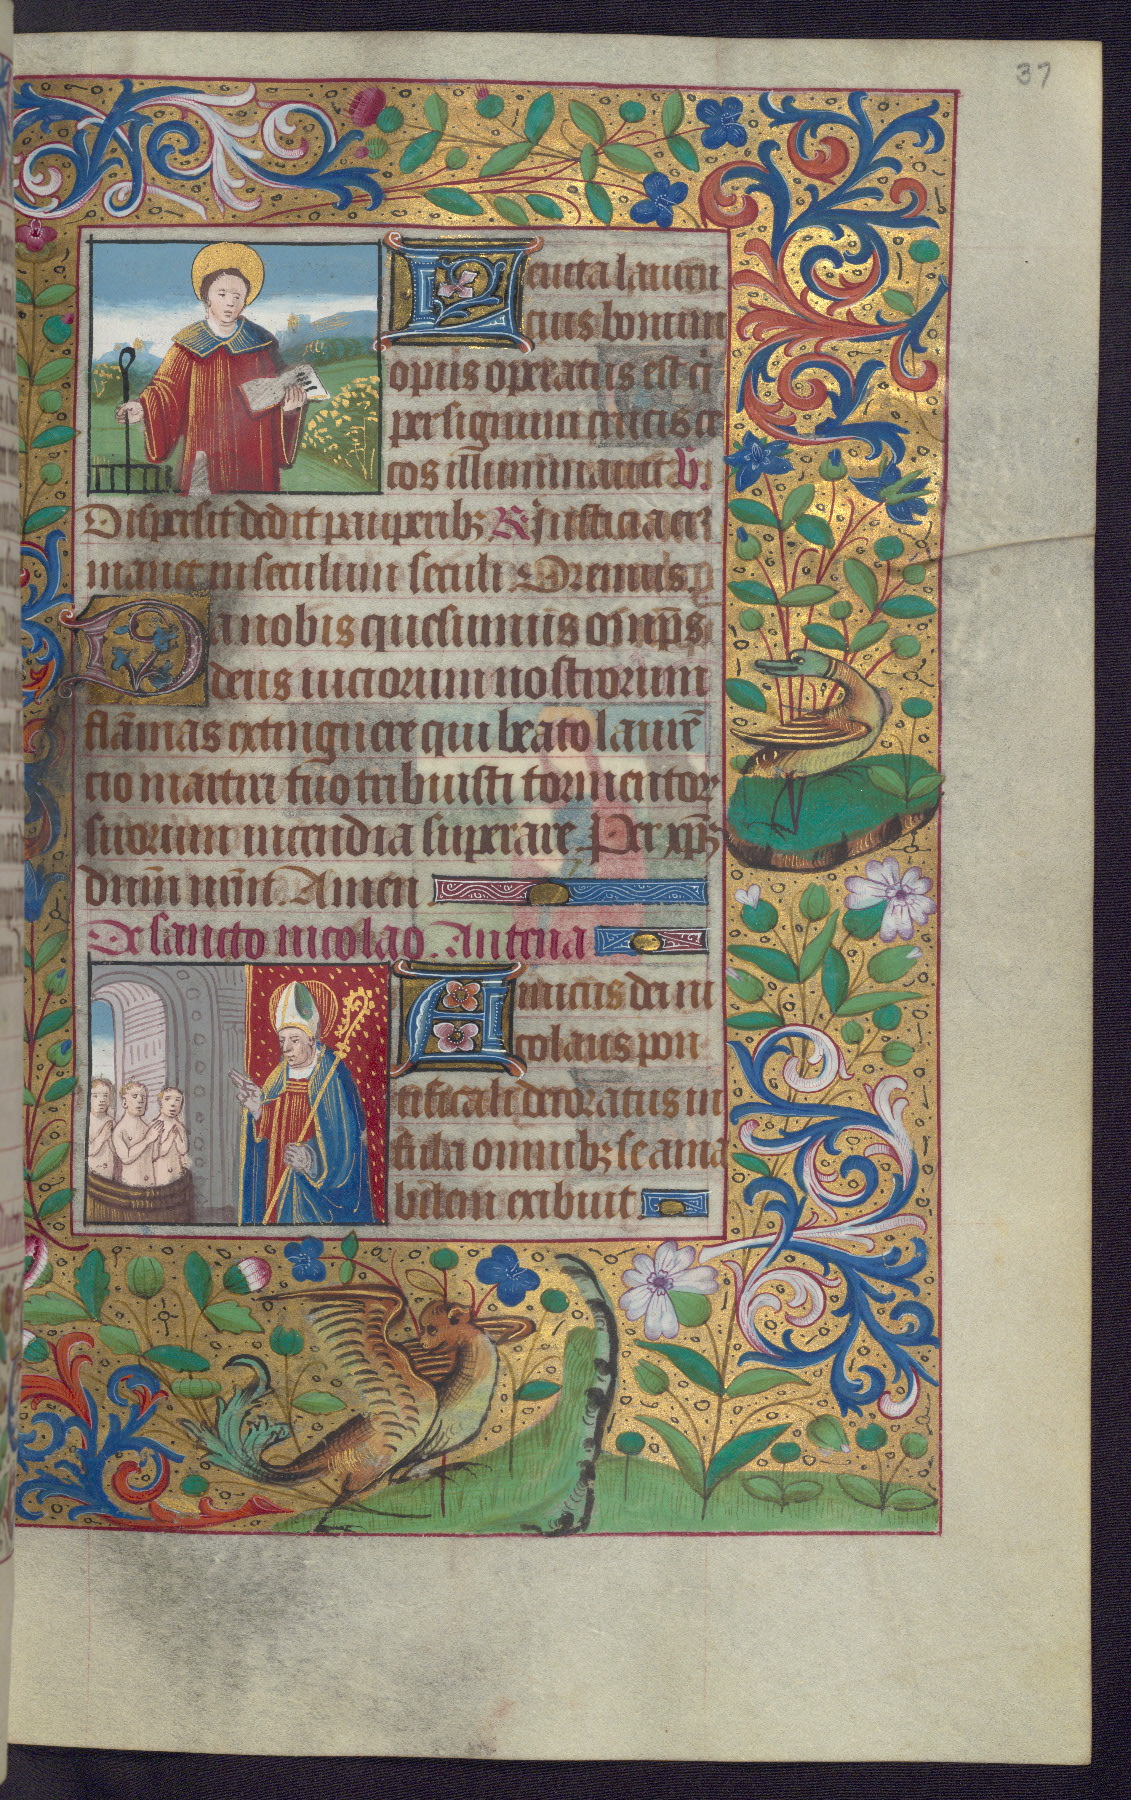 37
Leuita lauren
cius bonum
opus operatus est q̇
per signum crucis ce
cos illuminauit V.
Dispersit dedit pauperibꝫ R. Justicia eiꝰ
manet in seculum seculi Oremus
Da nobis quesumus om̄ps
deus uiciorum nostrorum
flām̄as extinguere qui beato laurē
cio martiri tuo tribuisti tormentoꝝ
suorum incendia superare Per xp̄m
dn̄m nr̄m Amen
De sancto nicolao Antena
Amicus dei ni
colaus pon
tificali decoratus in
fula omnibꝫ se ama
bilem exibuit